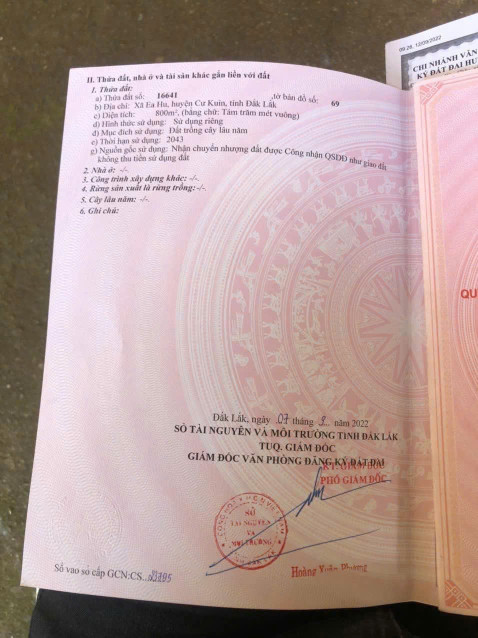 09:28, 12/09/2022
CHI NHÁNH VĂN
KÝ ĐẤT ĐAI HU
II. Thửa đất, nhà ở và tài sản khác gắn liền với đất
1. Thửa đất:
a) Thửa đất số: 16641 ,tờ bản đồ số: 69
b) Địa chỉ: Xã Ea Hu, huyện Cư Kuin, tỉnh Đắk Lắk
c) Diện tích: 800m², (bằng chữ: Tám trăm mét vuông)
d) Hình thức sử dụng: Sử dụng riêng
đ) Mục đích sử dụng: Đất trồng cây lâu năm
e) Thời hạn sử dụng: 2043
g) Nguồn gốc sử dụng: Nhận chuyển nhượng đất được Công nhận QSDĐ như giao đất
không thu tiền sử dụng đất
2. Nhà ở: -/-
3. Công trình xây dựng khác: -/-
4. Rừng sản xuất là rừng trồng: -/-
5. Cây lâu năm: -/-
6. Ghi chú:
QU
Đắk Lắk, ngày 07 tháng 9 năm 2022
SỞ TÀI NGUYÊN VÀ MÔI TRƯỜNG TỈNH ĐẮK LẮK
TUQ. GIÁM ĐỐC
GIÁM ĐỐC VĂN PHÒNG ĐĂNG KÝ ĐẤT ĐAI
KT. GIÁM ĐỐC
PHÓ GIÁM ĐỐC
SỞ
TÀI NGUYÊN
VÀ
MÔI TRƯỜNG
Số vào sổ cấp GCN:CS...
Hoàng Xuân